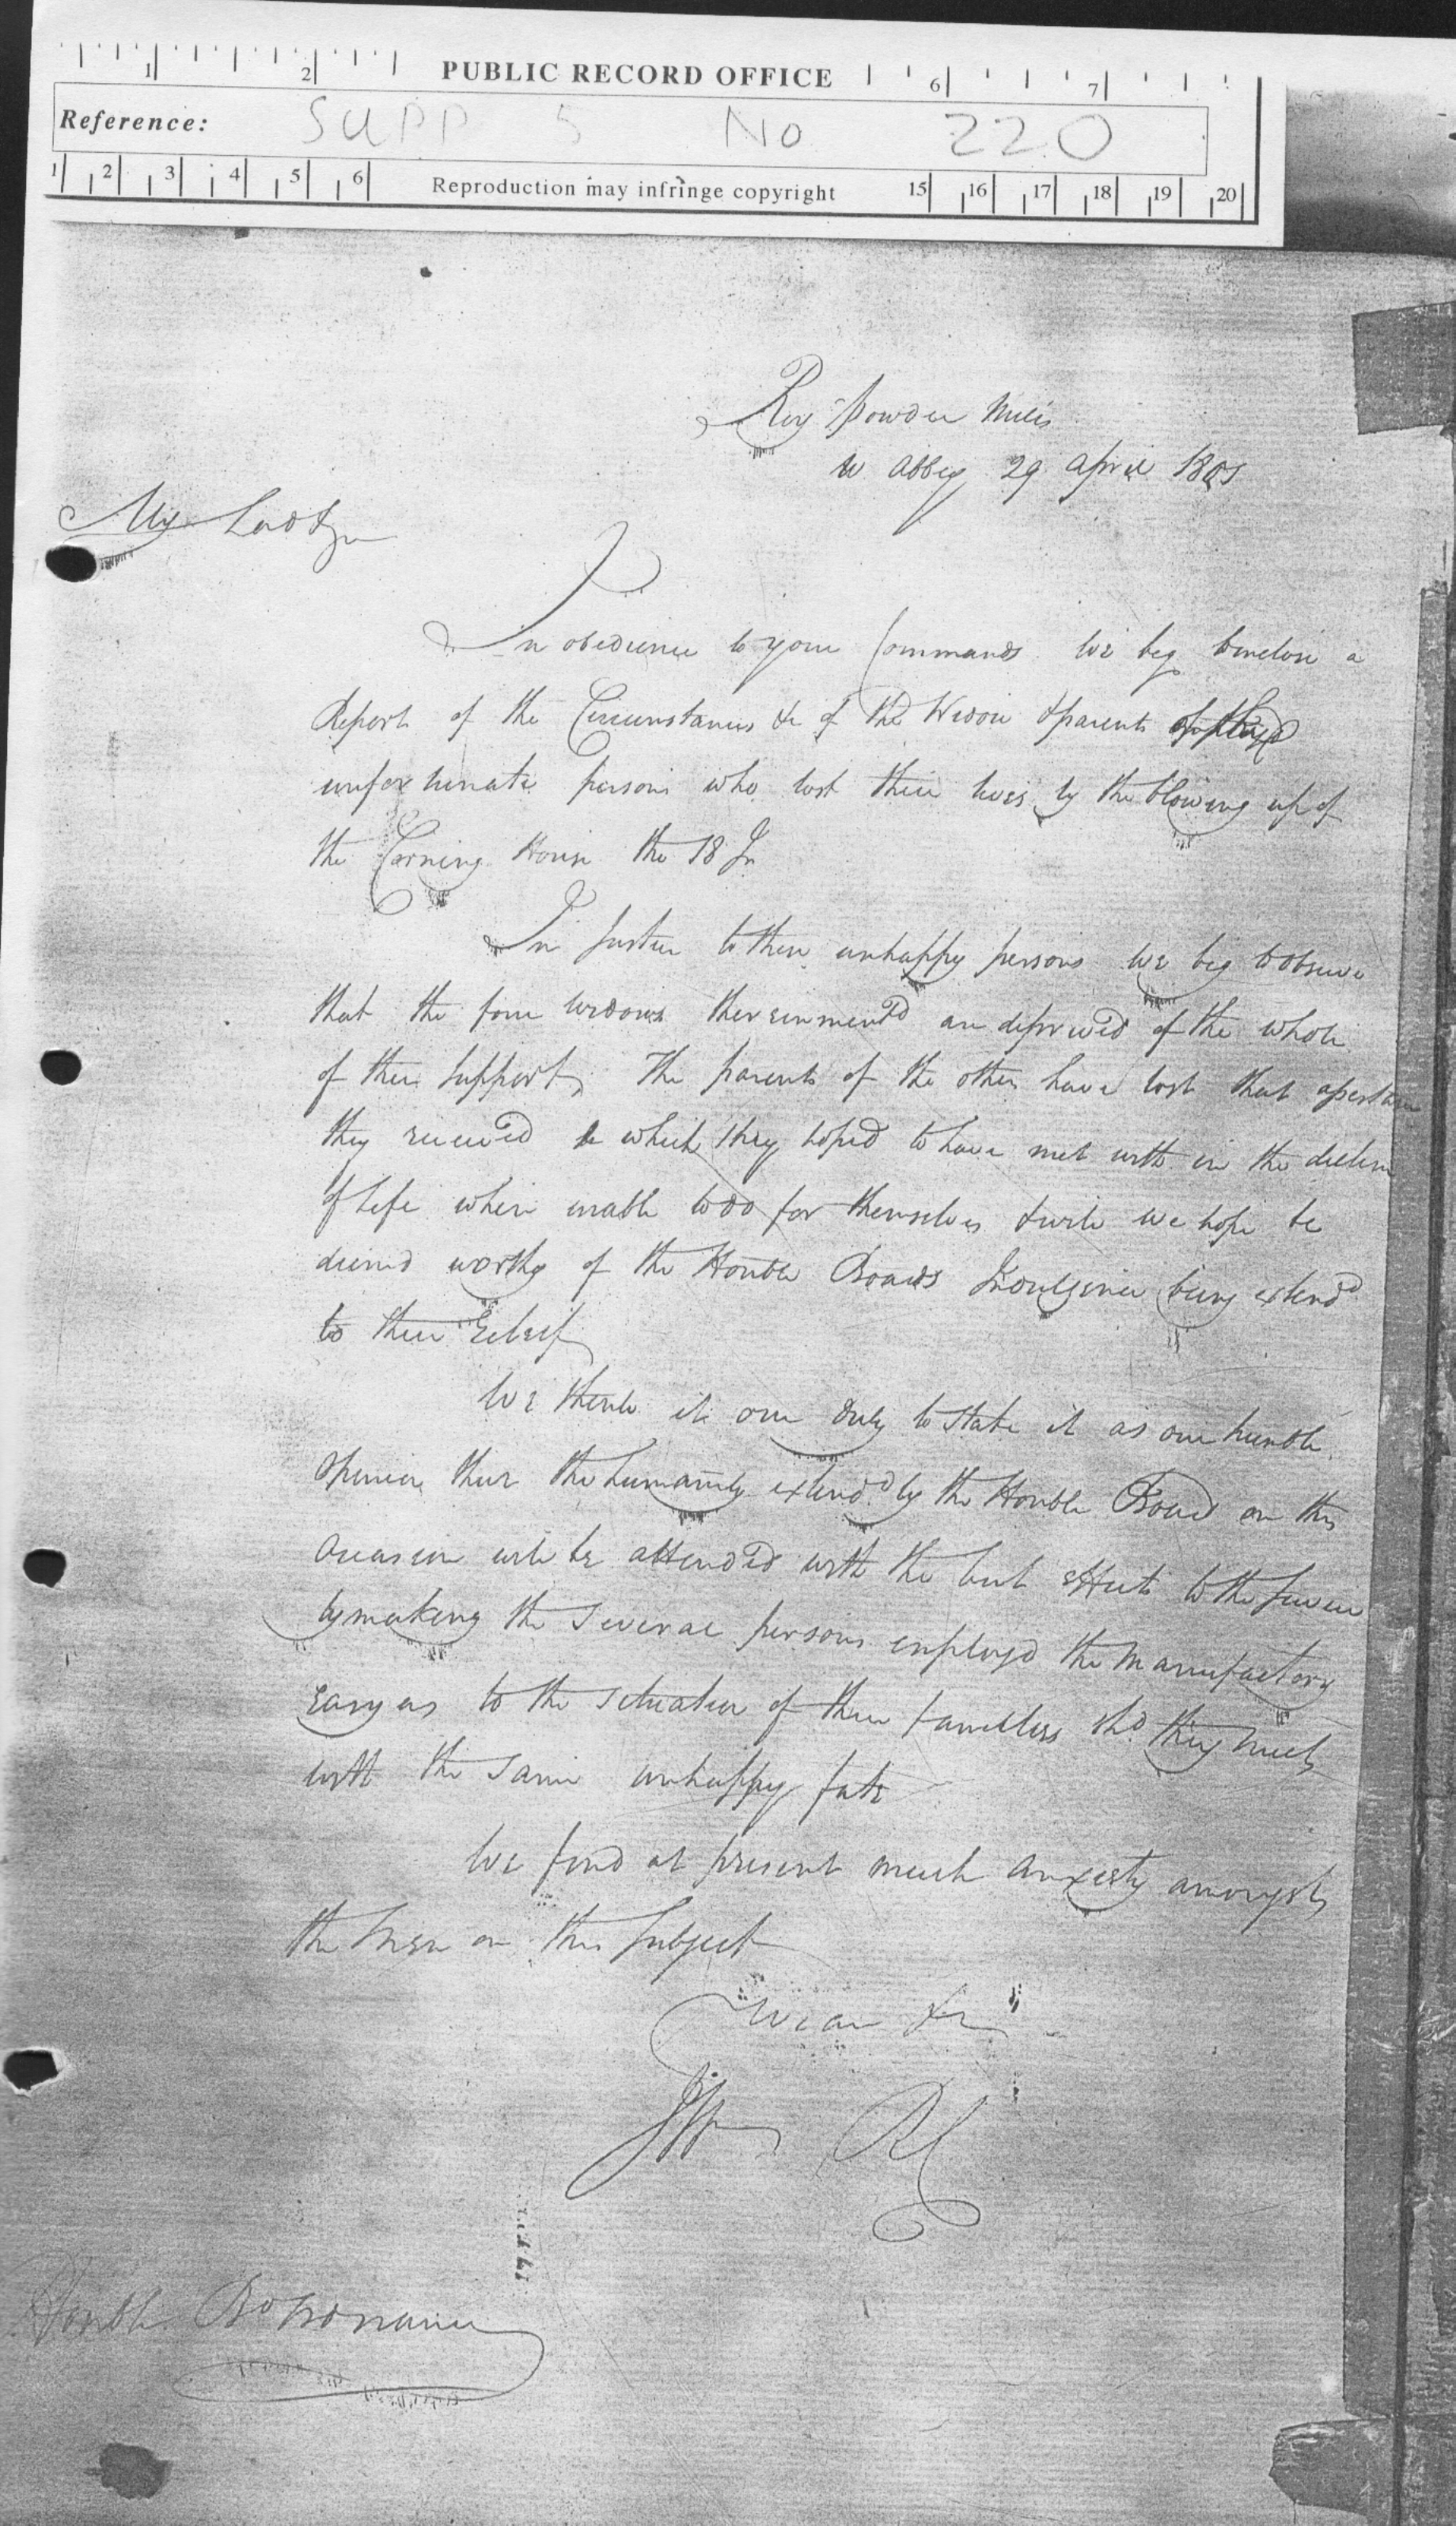 PUBLIC RECORD OFFICE
Reference: SUPP 5 No 220
Reproduction may infringe copyright
Roy Powder Mills
W Abbey 29 April 1801
My Lord &c
In obedience to your Commands We beg to inclose a
Report of the Circumstances &c of the Widow & parents of the
unfortunate persons who lost their lives by the blowing up of
the Corning House the 18 In
In Justice to these unhappy persons We beg to observe
that the four Widows therein ment'd are deprived of the whole
of their Support, The parents of the others have lost that
they received & which they hoped to have met with in the decline
of Life when unable to do for themselves & will we hope be
deemed worthy of the Honble Boards Indulgence being extend'd
to their Relief
We think it our duty to State it as our humble
Opinion that the humanity extend'd by the Honble Board on this
Occasion will be attended with the best effects to the Service
by making the Several persons employd the Manufactory
easy as to the Situation of their families sho'd they meet
with the same unhappy fate
We find at present much anxiety amongst
the Men on this Subject
We are &c
Honble Bd Ordnance